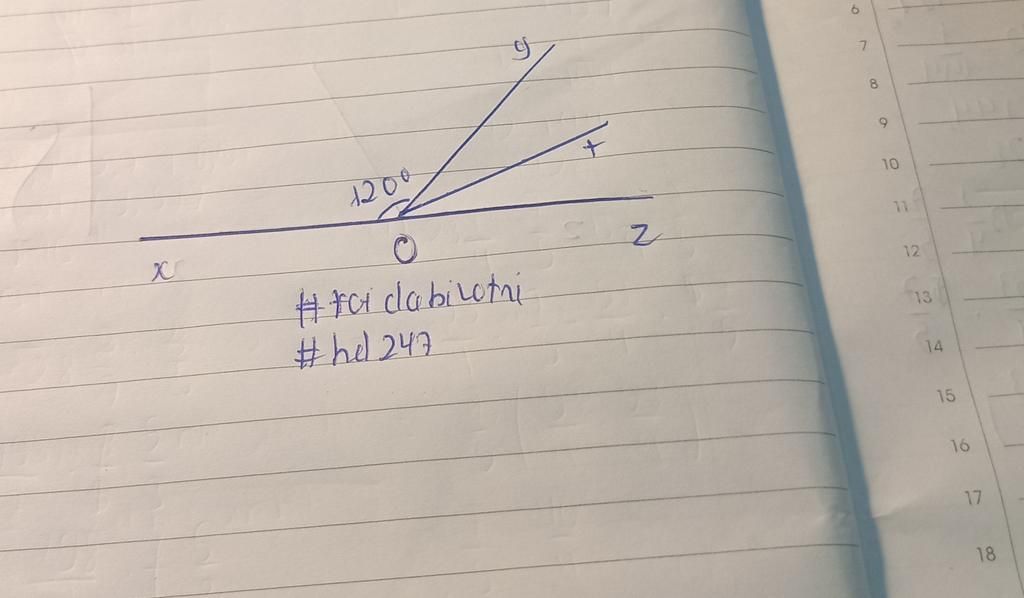 y
t
120°
x
O
z
#taidabiloтni
#hd247
6
7
8
9
10
11
12
13
14
15
16
17
18